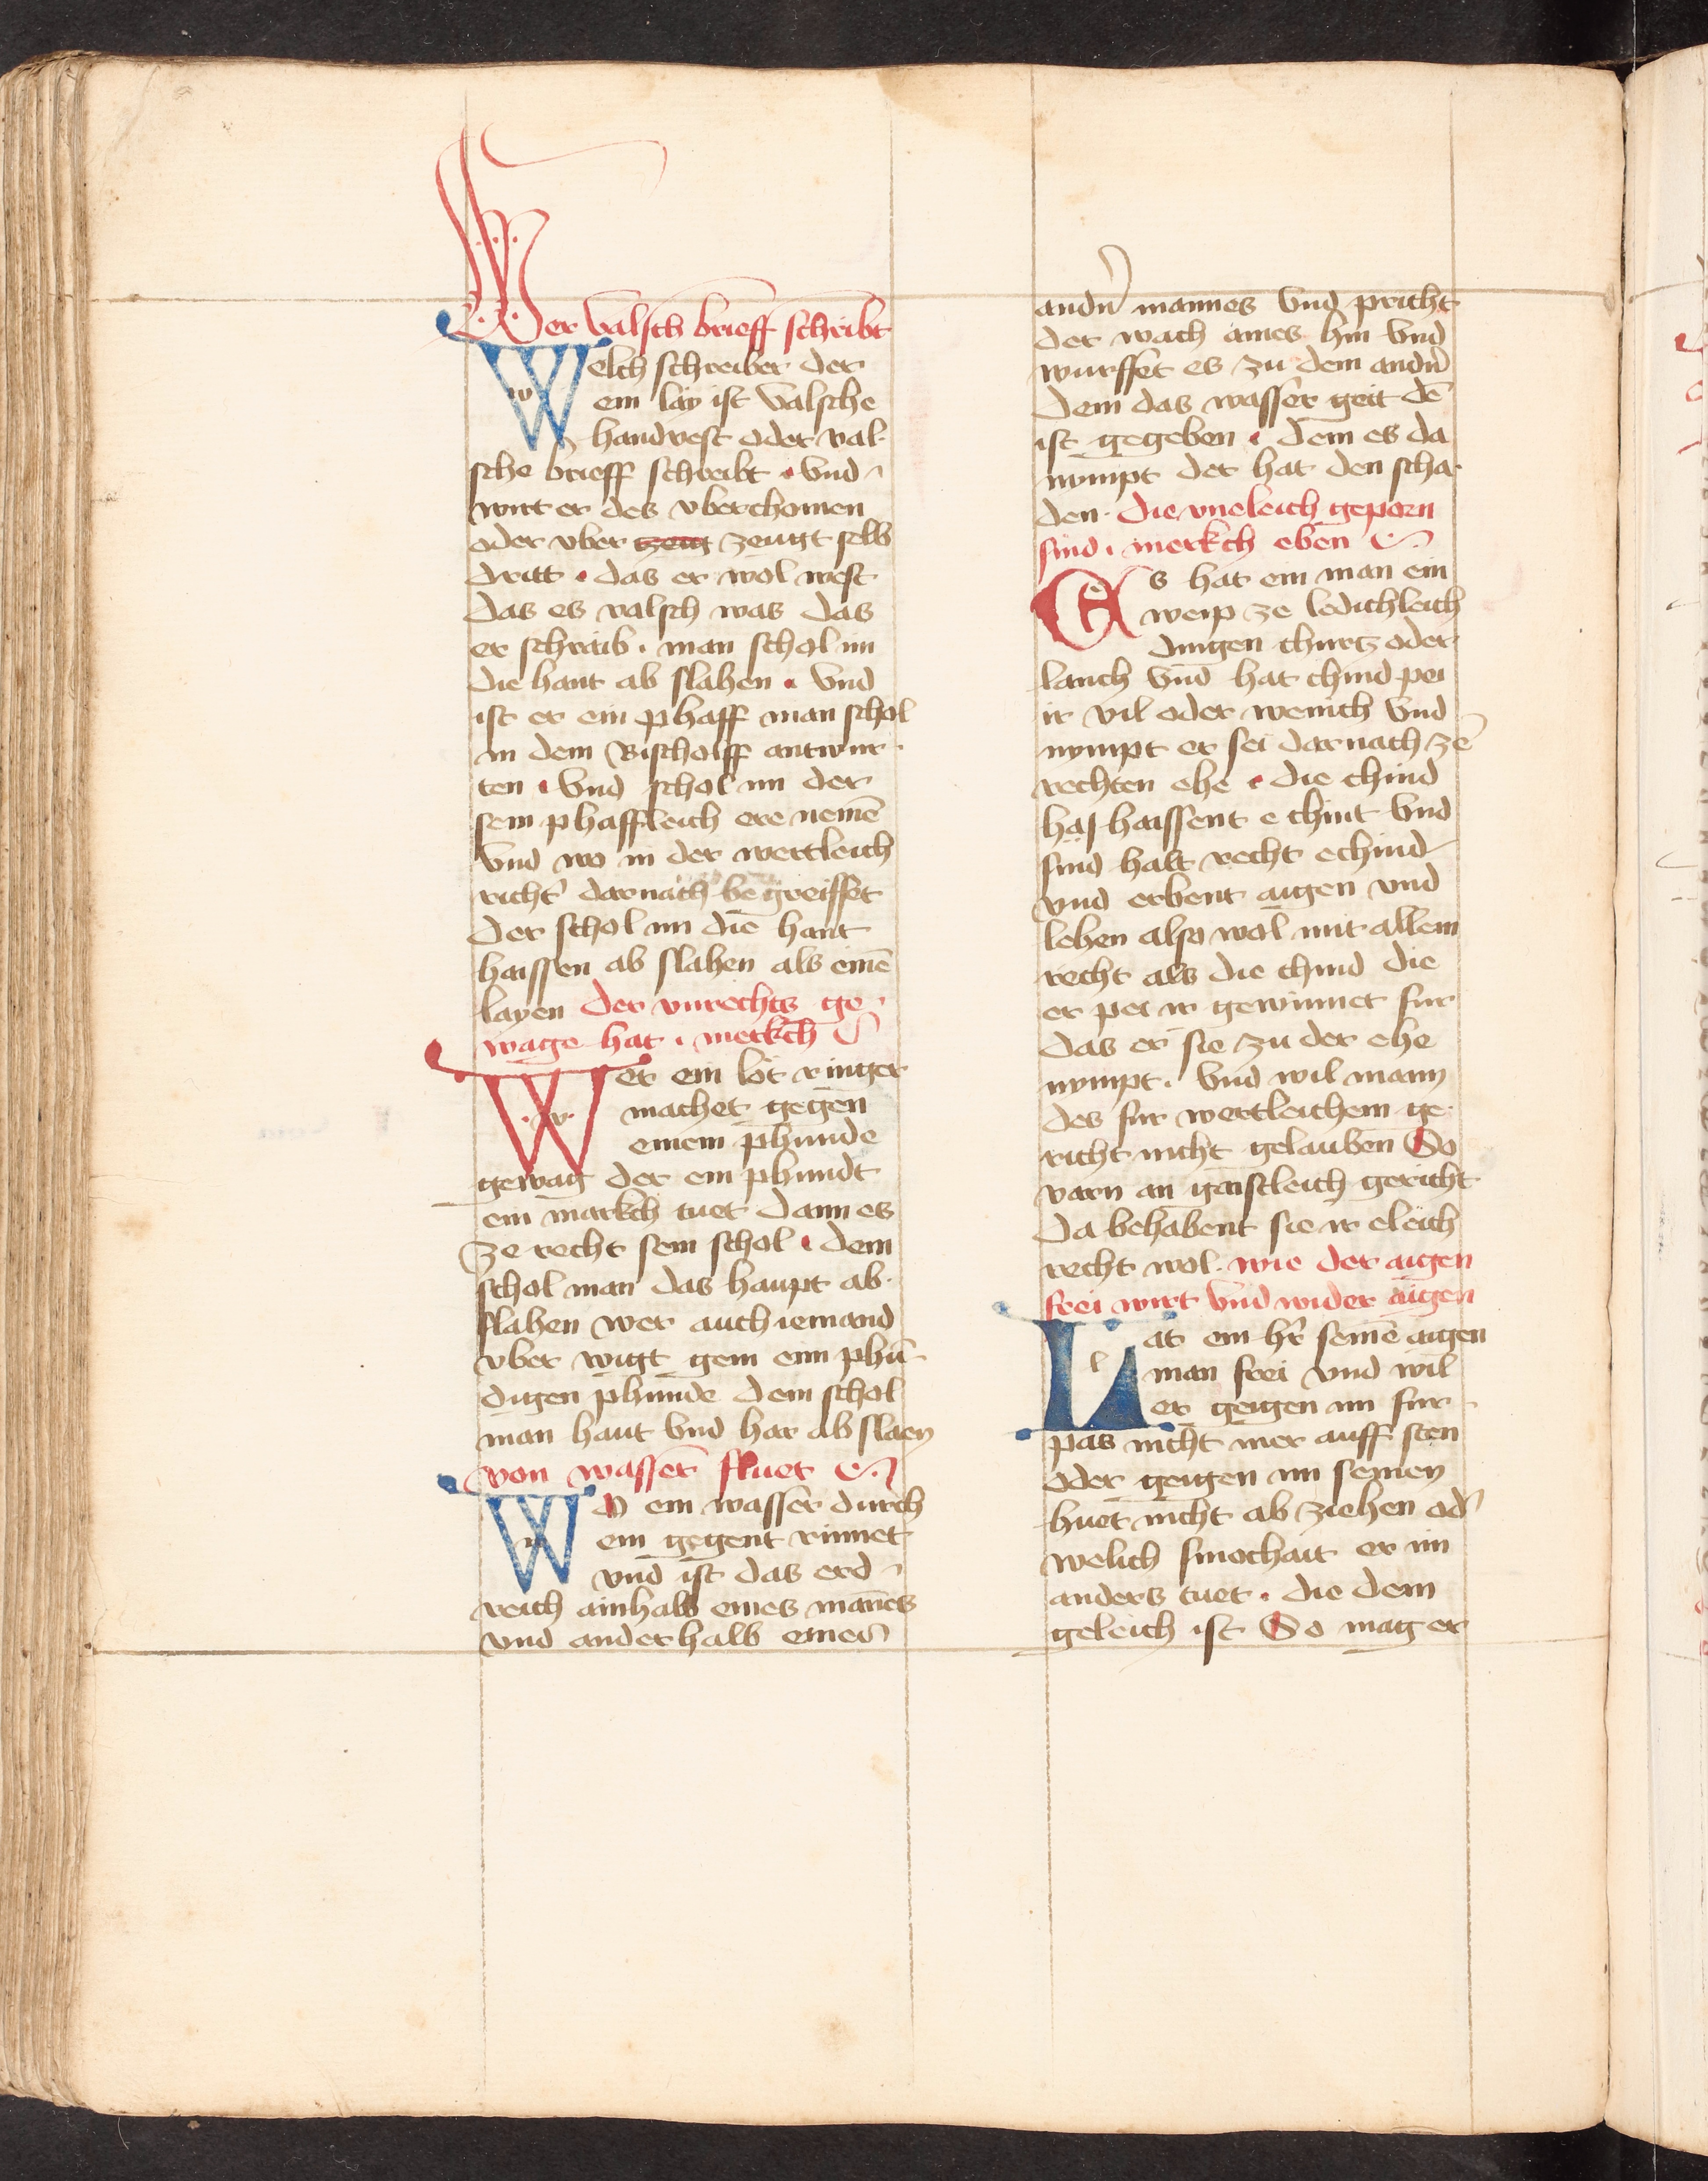 Wer valsch brieff schreibt
Welch schreiber der
ein lay ist valsche
handvest oder val
sche brieff schreibt · vnd
wirt er des vberchomen
oder vber zeug zeugt selb
dritt · das er wol west
das es valsch was das
er schraib · man schol im
die hant ab slahen · vnd
ist er ein phaff man schol
in dem Bischolff antwur
ten · vnd schol im der
sein phaffleich ere nemē
vnd wo in der wertleich
richt' darnach begreiffet
der schol im die hant
haissen ab slahen als einē
layen der vnrechts ge
wage hat · merkch
Wer ein löt ringer
machet gegen
einem phunde
gewag der ein phundt
ein markch tuet dann es
ze recht sein schol · dem
schol man das haupt ab
slahen wer auch iemand
vber wigt gem eim phū
digen phunde dem schol
man haut vnd har ab slaen
von wasser fluet
Wo ein wasser durch
ein gegent rinnet
vnd ist das erd
reich ainhalb eines mānes
vnd anderhalb eines
andn̄ mannes vnd pricht
der wach aines hin vnd
wurffet es zu dem andn̄
dem das wasser geit dē
ist gegeben · dem es da
nympt der hat den scha
den · die vneleich geporn
sind · merkch eben
Es hat ein man ein
weip ze ledichleich
dingen churtz oder
lanch vnd hat chind pei
ir vil oder wenich vnd
nympt er sei darnach zē
rechten ehe · die chind
haj haissent e chint vnd
sind halt recht echind
vnd erbent aigen vnd
lehen also wol mit allem
recht als die chind die
er pei ir gewinnet fur
das er sie zu der ehe
nympt · vnd wil mann
des fur wertleichem ge
richt nicht gelauben So
varn an gaistleich gericht
da behabent sie ir eleich
recht wol · wie der aigen
frei wirt vnd wider aigen
Lat ein hr̄ seinē aigen
man frei vnd wil
er gengen im fur
pas nicht mer auff sten
oder gengen im seinen
huet nicht ab ziehen od'
welich smochait er im
anders tuet · die dem
geleich ist So mag er